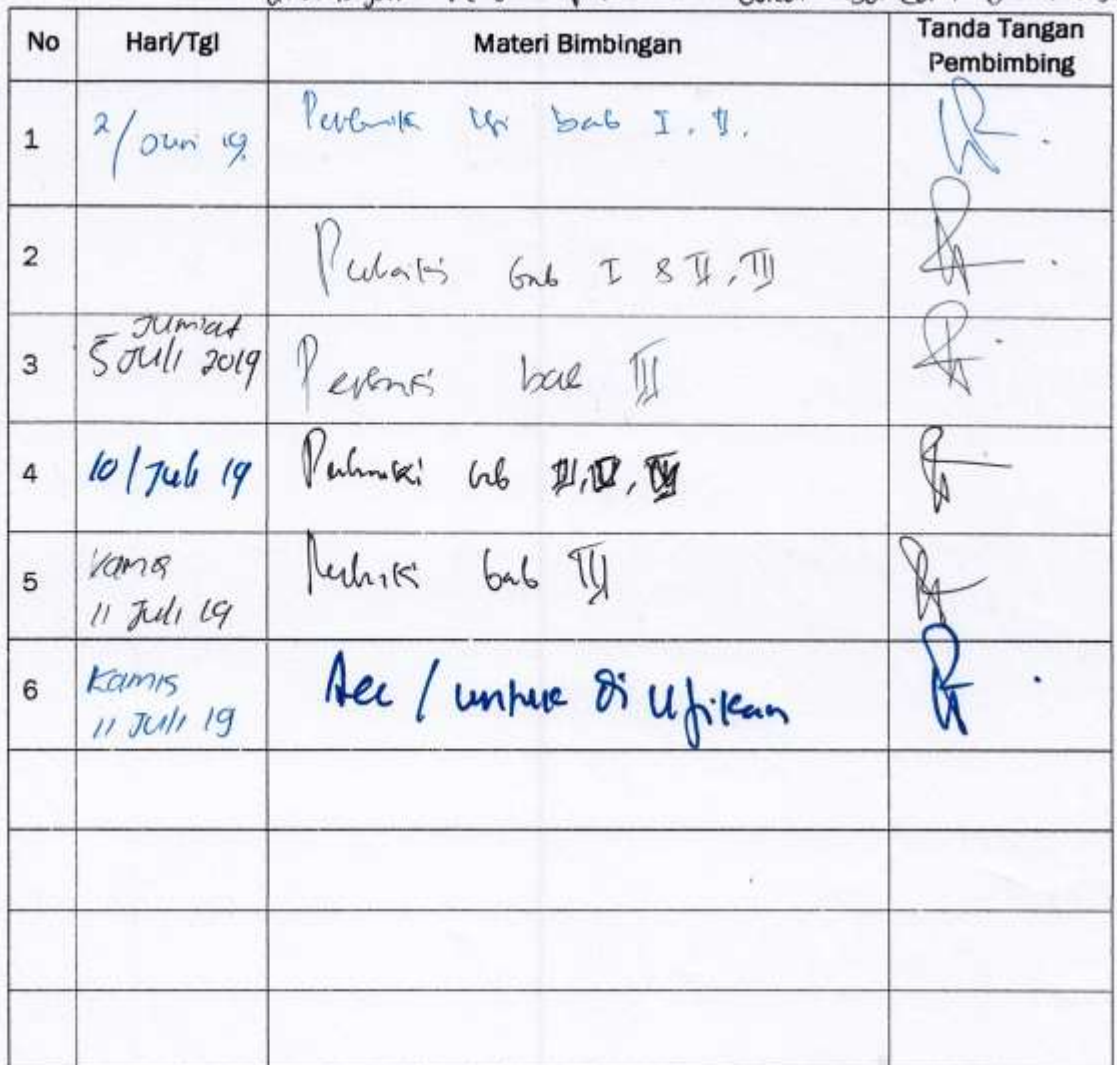 No Hari/Tgl Materi Bimbingan Tanda Tangan Pembimbing
1 2/ Juni 19 bab I. II.
2 Perbaiki bab I & II, III
3 Jumiat 5 Juli 2019 Perbaiki bab III
4 10/Juli 19 Perbaiki bab
5 Kamis 11 Juli 19 Perbaiki bab III
6 Kamis 11 Juli 19 Acc / untuk di Ujikan